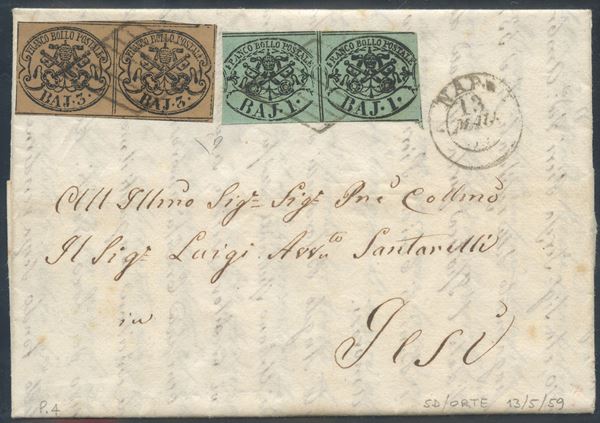 FRANCO BOLLO POSTALE
BAJ. 3.
FRANCO BOLLO POSTALE
BAJ. 3.
FRANCO BOLLO POSTALE
BAJ. 1.
FRANCO BOLLO POSTALE
BAJ. 1.
13
All Illmo Sigr Sigr Pne Collmo
Il Sigr Luigi Avvto Santarelli
in
Jesi
P.4
SD/ORTE 13/5/59